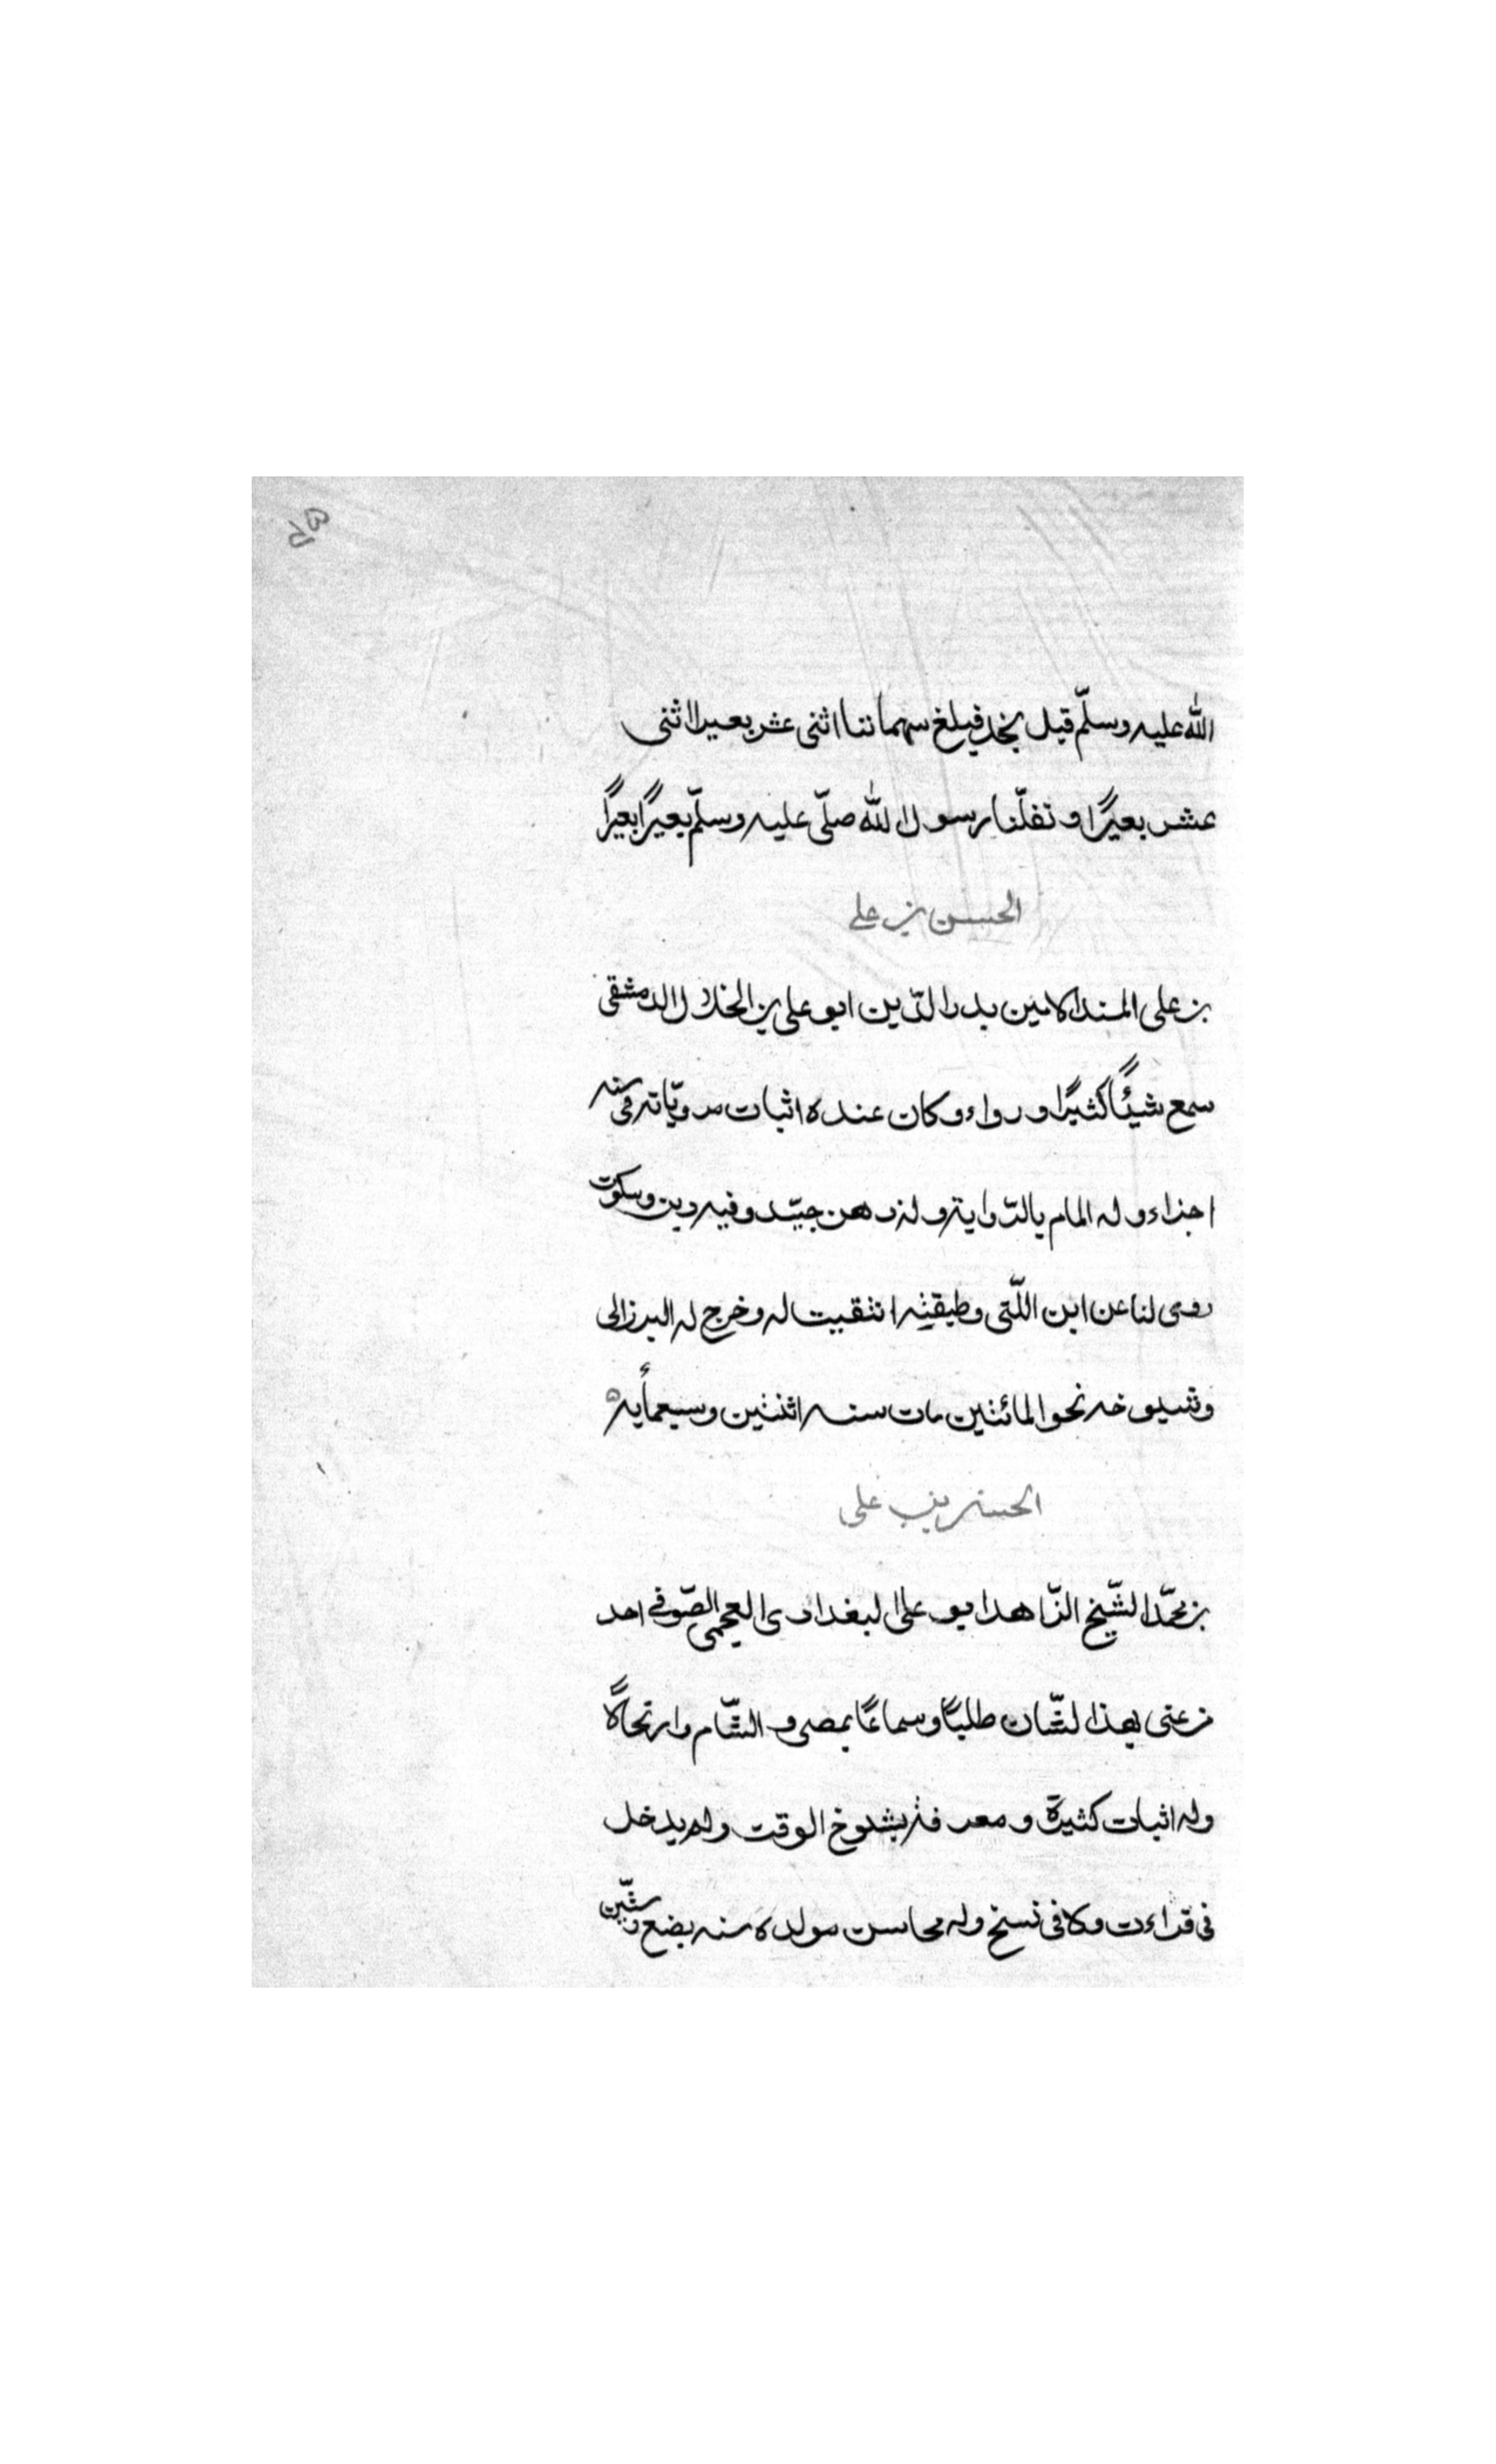 الله عليه وسلّم قبل نجد فبلغ سهماننا اثنى عشر بعيرا اثنى
عشر بعيرًا و نفلّنا رسول الله صلّى عليه وسلّم بعيرًا بعيرًا
الحسن بن على
بن على المسند الامين بدر الدّين ابو على بن الخلال الدمشقى
سمع شيئًا كثيرًا ورواه وكان عنده اثبات مرويّاته فى ستة
اجزاء وله المام بالرّواية وله ذهن جيّد وفيه دين وسكون
روى لنا عن ابن اللّتى وطبقته انتقيت له وخرج له البرزالى
وشيوخه نحو المائتين مات سنه اثنتين وسبعمأيه
الحسن بن على
بن محمّد الشّيخ الزّاهد ابو على البغدادى العجمى الصّوفى احد
من عنى بهذا الشّان طلبًا وسماعًا بمصر و الشّام وارتحالًا
وله اثبات كثيرة و معرفة بشيوخ الوقت ولم يدخل
فى قراءت ولا فى نسخ وله محاسن مولده سنه بضع وستّين